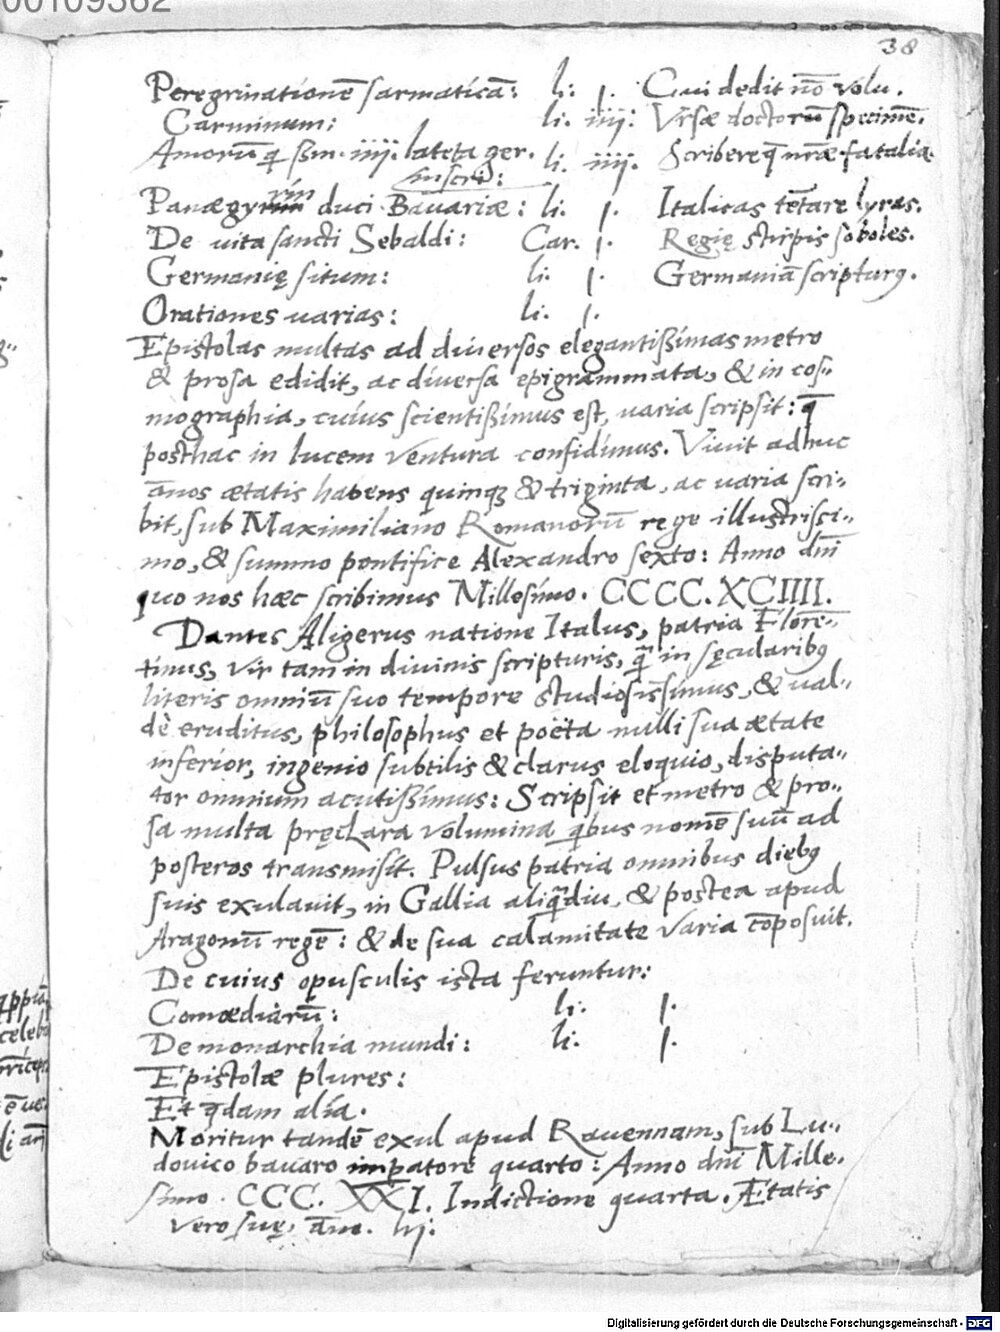 00109362
38
Peregrinationẽ sarmaticã: li: 1. Cui dedit nõ volu.
Carminum: li. iiij: Vrsæ doctorũ specimẽ.
Amorũ q̃ ßm. iiij. lateta ger. li. iiij. Scribereq̃ nr̃æ fatalia.
inscri:
rin
Panægyricum duci Bauariæ: li. 1. Italicas tẽtare lyras.
De vita sancti Sebaldi: Car. 1. Regię stirpis soboles.
Germanię situm: li. 1. Germaniã scripturꝯ.
Orationes varias: li. 1.
Epistolas multas ad diuersos elegantißimas metro
& prosa edidit, ac diuersa epigrammata, & in cos-
mographia, cuius scientißimus est, varia scripsit: q̃
posthac in lucem ventura confidimus. Viuit adhuc
ãnos ætatis habens quinqꝫ & triginta, ac varia scri-
bit, sub Maximiliano Romanorũ rege illustrissi-
mo, & summo pontifice Alexandro sexto: Anno dñi
quo nos hæc scribimus Millesimo. CCCC. XCIIII.
Dantes Aligerus natione Italus, patria Florẽ-
tinus, vir tam in diuinis scripturis, q̃ in sęcularibꝯ
literis omniũ suo tempore studiosissimus, & val-
dè eruditus, philosophus et poëta nulli sua ætate
inferior, ingenio subtilis & clarus eloquio, disputa-
tor omnium acutißimus: Scripsit et metro & pro-
sa multa pręclara volumina q̃bus nomẽ suũ ad
posteros transmisit. Pulsus patria omnibus diebꝯ
suis exulauit, in Gallia aliq̃diu, & postea apud
Aragonũ regẽ: & de sua calamitate varia cõposuit.
De cuius opusculis ista feruntur:
Comœdiarũ: li: 1.
De monarchia mundi: li. 1.
Epistolæ plures:
Et q̃dam alia.
Moritur tandẽ exul apud Rauennam, sub Lu-
douico bauaro imꝑatore quarto: Anno dñi Mille-
simo. CCC. XXI. Indictione quarta. Ætatis
vero suę, ãno. lvj.
Digitalisierung gefördert durch die Deutsche Forschungsgemeinschaft - DFG